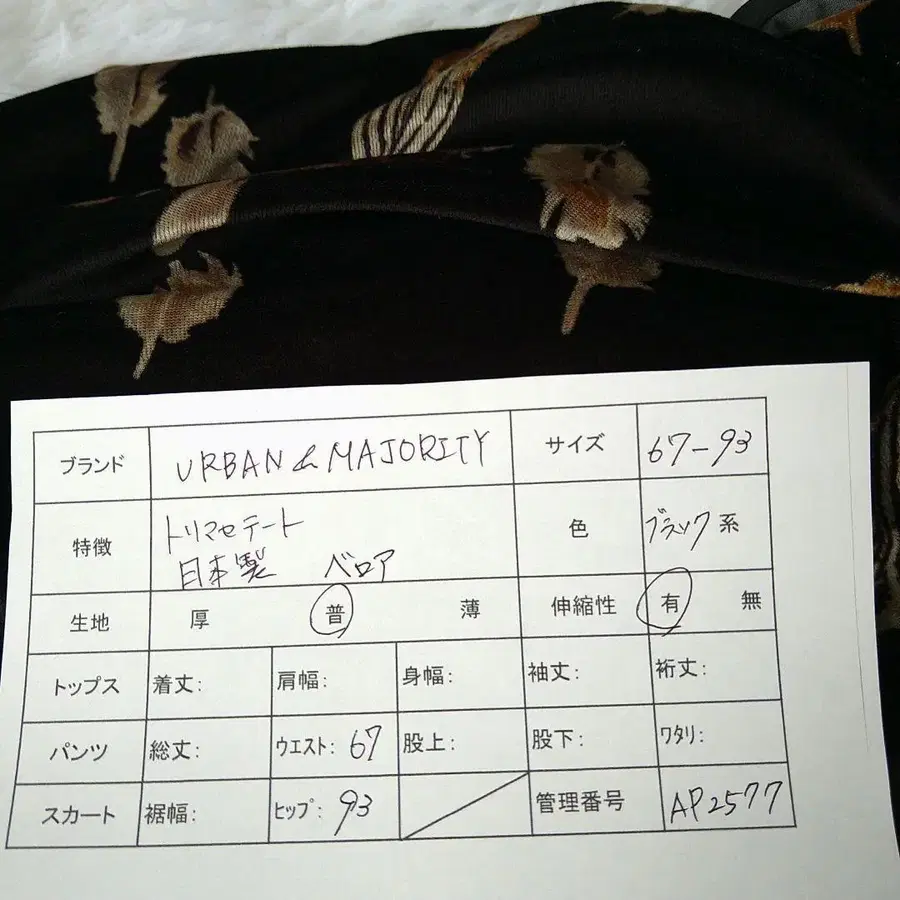 ブランド URBAN & MAJORITY サイズ 67-93
特徴 トリアセテート 色 ブラック系
日本製 ベロア
生地 厚 普 薄 伸縮性 有 無
トップス 着丈: 肩幅: 身幅: 袖丈: 裄丈:
パンツ 総丈: ウエスト: 67 股上: 股下: ワタリ:
スカート 裾幅: ヒップ: 93 管理番号 AP2577